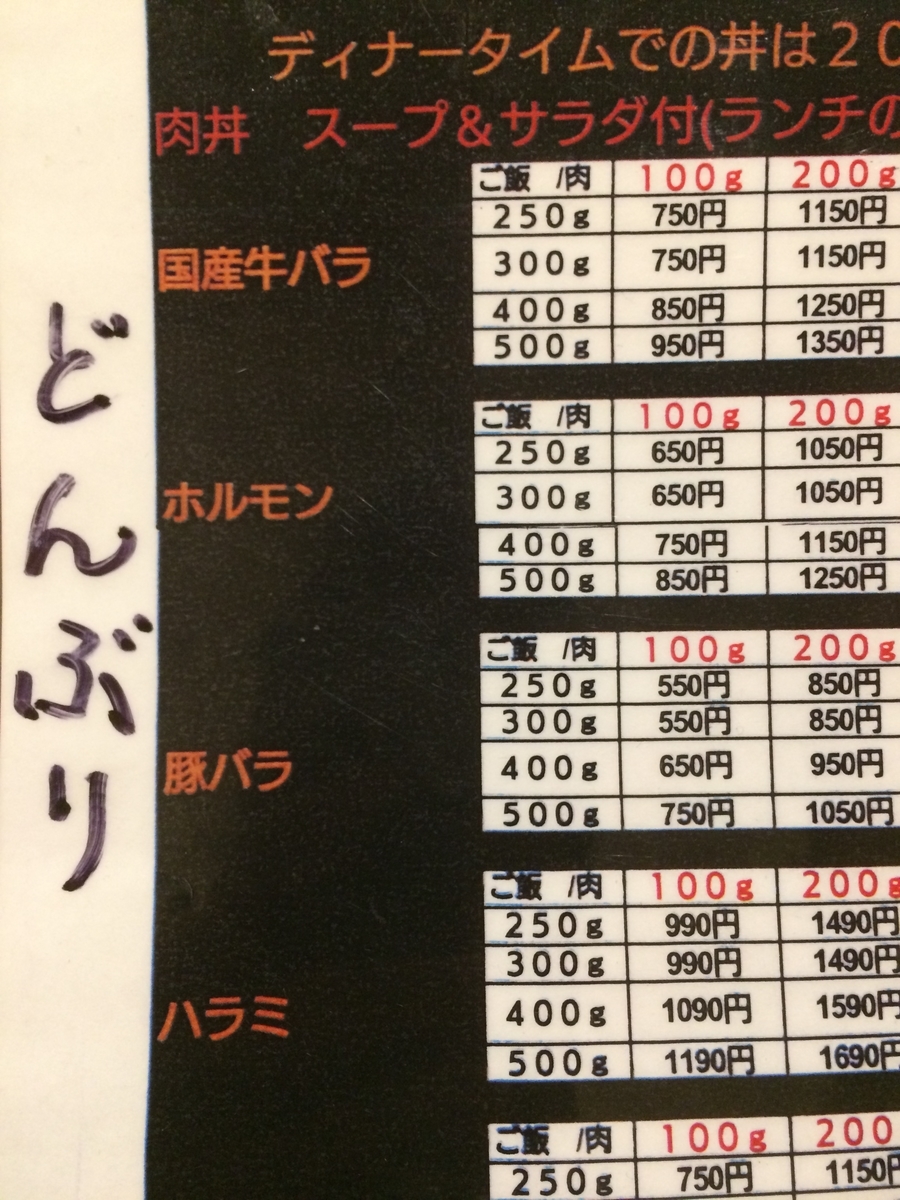 どんぶり
ディナータイムでの丼は20
肉丼 スープ&サラダ付(ランチの
国産牛バラ
ご飯 /肉 100g 200g
250g 750円 1150円
300g 750円 1150円
400g 850円 1250円
500g 950円 1350円
ホルモン
ご飯 /肉 100g 200g
250g 650円 1050円
300g 650円 1050円
400g 750円 1150円
500g 850円 1250円
豚バラ
ご飯 /肉 100g 200g
250g 550円 850円
300g 550円 850円
400g 650円 950円
500g 750円 1050円
ハラミ
ご飯 /肉 100g 200g
250g 990円 1490円
300g 990円 1490円
400g 1090円 1590円
500g 1190円 1690円
ご飯 /肉 100g 200
250g 750円 1150円